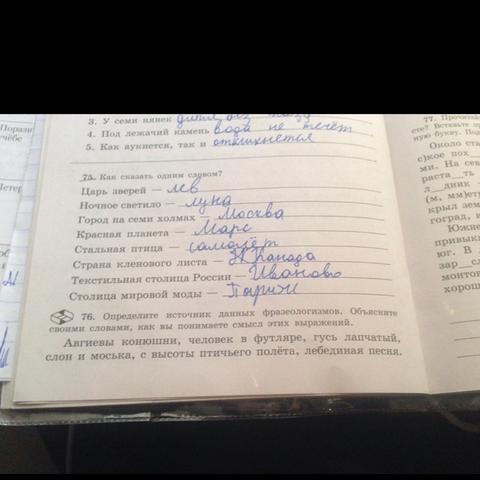 3. У семи нянек дитя без глазу
4. Под лежачий камень вода не течёт
5. Как аукнется, так и откликнется
75. Как сказать одним словом?
Царь зверей — лев
Ночное светило — луна
Город на семи холмах — Москва
Красная планета — Марс
Стальная птица — самолёт
Страна кленового листа — Канада
Текстильная столица России — Иваново
Столица мировой моды — Париж
76. Определите источник данных фразеологизмов. Объясните
своими словами, как вы понимаете смысл этих выражений.
Авгиевы конюшни, человек в футляре, гусь лапчатый,
слон и моська, с высоты птичьего полёта, лебединая песня.
77. Прочитай
сте? Вставьте п
ную букву. Под
Около ста
с)кое пох
ми. На сев
раста__ть
л__дник
(м, мм)ету
крыл зем
гоград, и
Южне
привыкл
юг. В
зар__сл
монтов
хорош